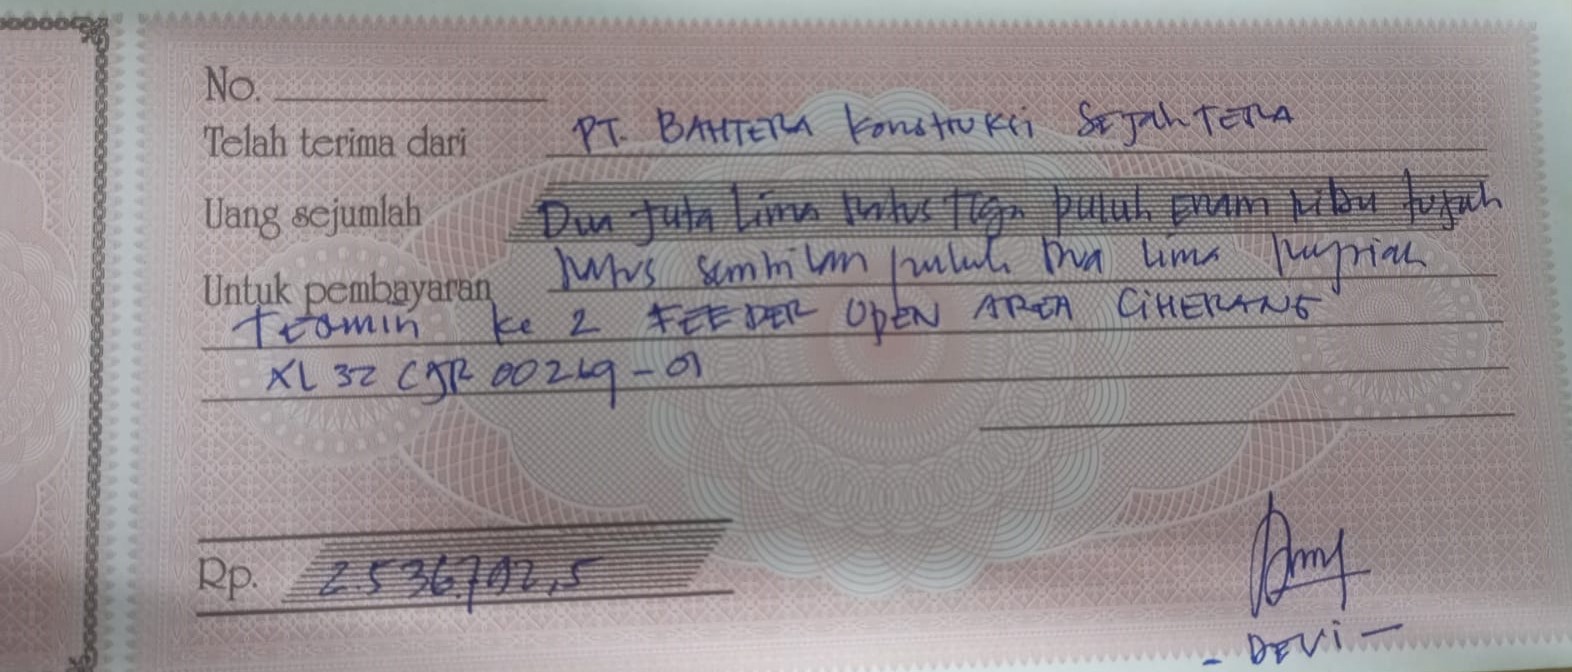 No.
Telah terima dari PT. BAHTERA Konstruksi SEJahTERA
Uang sejumlah Dua Juta Lima Ratus Tiga puluh Enam Ribu tujuh
Ratus Sembilan puluh Dua lima Rupiah
Untuk pembayaran
Teamin ke 2 FEEDER OpEN AREA CiHERANG
XL 32 CJR 00269-01
Rp. 2.536.792,5
- DEVi -